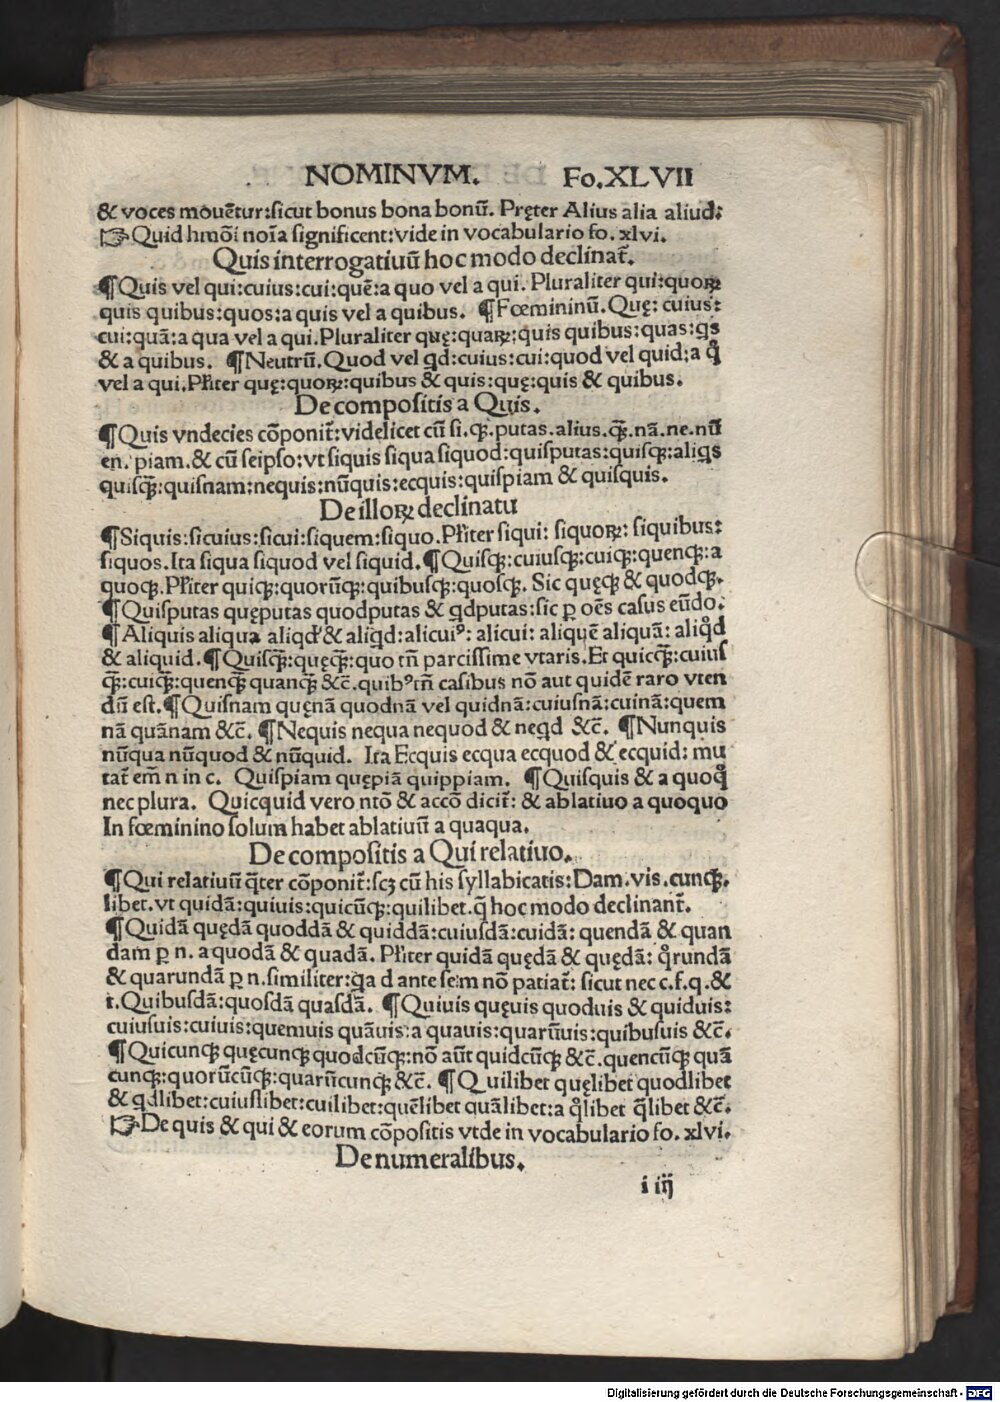 NOMINVM. Fo.XLVII
& voces mouētur:sicut bonus bona bonū. Pręter Alius alia aliud:
☞Quid hmōi noīa significent:vide in vocabulario fo. xlvi.
Quis interrogatiuū hoc modo declinat̄.
¶Quis vel qui:cuius:cui:quē:a quo vel a qui. Pluraliter qui:quoꝝ
quis quibus:quos:a quis vel a quibus. ¶Fœmininū. Quę: cuius:
cui:quā:a qua vel a qui.Pluraliter quę:quaꝝ:quis quibus:quas:q̄s
& a quibus. ¶Neutrū.Quod vel qd:cuius:cui:quod vel quid:a qͦ
vel a qui.Pl̄iter quę:quoꝝ:quibus & quis:quę:quis & quibus.
De compositis a Quis.
¶Quis vndecies cōponit̄:videlicet cū si.qꝫ.putas.alius.qꝫ̄.nā.ne.nū
en. piam.& cū seipso:vt siquis siqua siquod:quisputas:quisqꝫ:aliqs
quisqꝫ̄:quisnam:nequis:nūquis:ecquis:quispiam & quisquis.
De illoꝝ declinatu
¶Siquis:sicuius:sicui:siquem:siquo.Pl̄iter siqui: siquoꝝ: siquibus:
siquos.Ita siqua siquod vel siquid.¶Quisqꝫ:cuiusqꝫ:cuiqꝫ:quenqꝫ:a
quoqꝫ.Pl̄iter quiqꝫ:quorūqꝫ:quibusqꝫ:quosqꝫ. Sic quęqꝫ & quodqꝫ.
¶Quisputas quęputas quodputas & qdputas:sic ꝑ oēs casus eūdo.
¶Aliquis aliqua aliqd & aliqd:alicuiꝰ: alicui: aliquē aliquā: aliqͦd
& aliquid.¶Quisqꝫ̄:quęqꝫ̄:quo tn̄ parcissime vtaris.Et quicqꝫ̄:cuius
qꝫ̄:cuiqꝫ̄:quenqꝫ̄ quanqꝫ̄ &c̄.quibꝰ tn̄ casibus nō aut quidē raro vten
dū est.¶Quisnam quęnā quodnā vel quidnā:cuiusnā:cuinā:quem
nā quānam &c̄. ¶Nequis nequa nequod & neqd &c̄. ¶Nunquis
nūqua nūquod & nūquid. Ita Ecquis ecqua ecquod & ecquid: mu
tat̄ em̄ n in c. Quispiam quępiā quippiam. ¶Quisquis & a quoqͦ
nec plura. Quicquid vero ntō & accō dicit̄: & ablatiuo a quoquo
In fœminino solum habet ablatiuū a quaqua.
De compositis a Qui relatiuo.
¶Qui relatiuū q̄ter cōponit̄:scꝫ cū his syllabicatis:Dam.vis.cunqꝫ.
libet.vt quidā:quiuis:quicūqꝫ:quilibet.q̄ hoc modo declinant̄.
¶Quidā quędā quoddā & quiddā:cuiusdā:cuidā: quendā & quan
dam ꝑ n. a quodā & quadā. Pl̄iter quidā quędā & quędā: qͦrundā
& quarundā ꝑ n.similiter:qa d ante se m nō patiat̄: sicut nec c.f.q.&
t.Quibusdā:quosdā quasdā. ¶Quiuis quęuis quoduis & quiduis:
cuiusuis:cuiuis:quemuis quāuis:a quauis:quarūuis:quibusuis &c̄.
¶Quicunqꝫ quęcunqꝫ quodcūqꝫ:nō aūt quidcūqꝫ &c̄.quencūqꝫ quā
cunqꝫ:quorūcūqꝫ:quarūcunqꝫ &c̄. ¶Quilibet quęlibet quodlibet
& qdlibet:cuiuslibet:cuilibet:quēlibet quālibet:a qͦlibet q̄libet &c̄.
☞De quis & qui & eorum cōpositis vtde in vocabulario fo. xlvi.
De numeralibus.
i iij
Digitalisierung gefördert durch die Deutsche Forschungsgemeinschaft - DFG